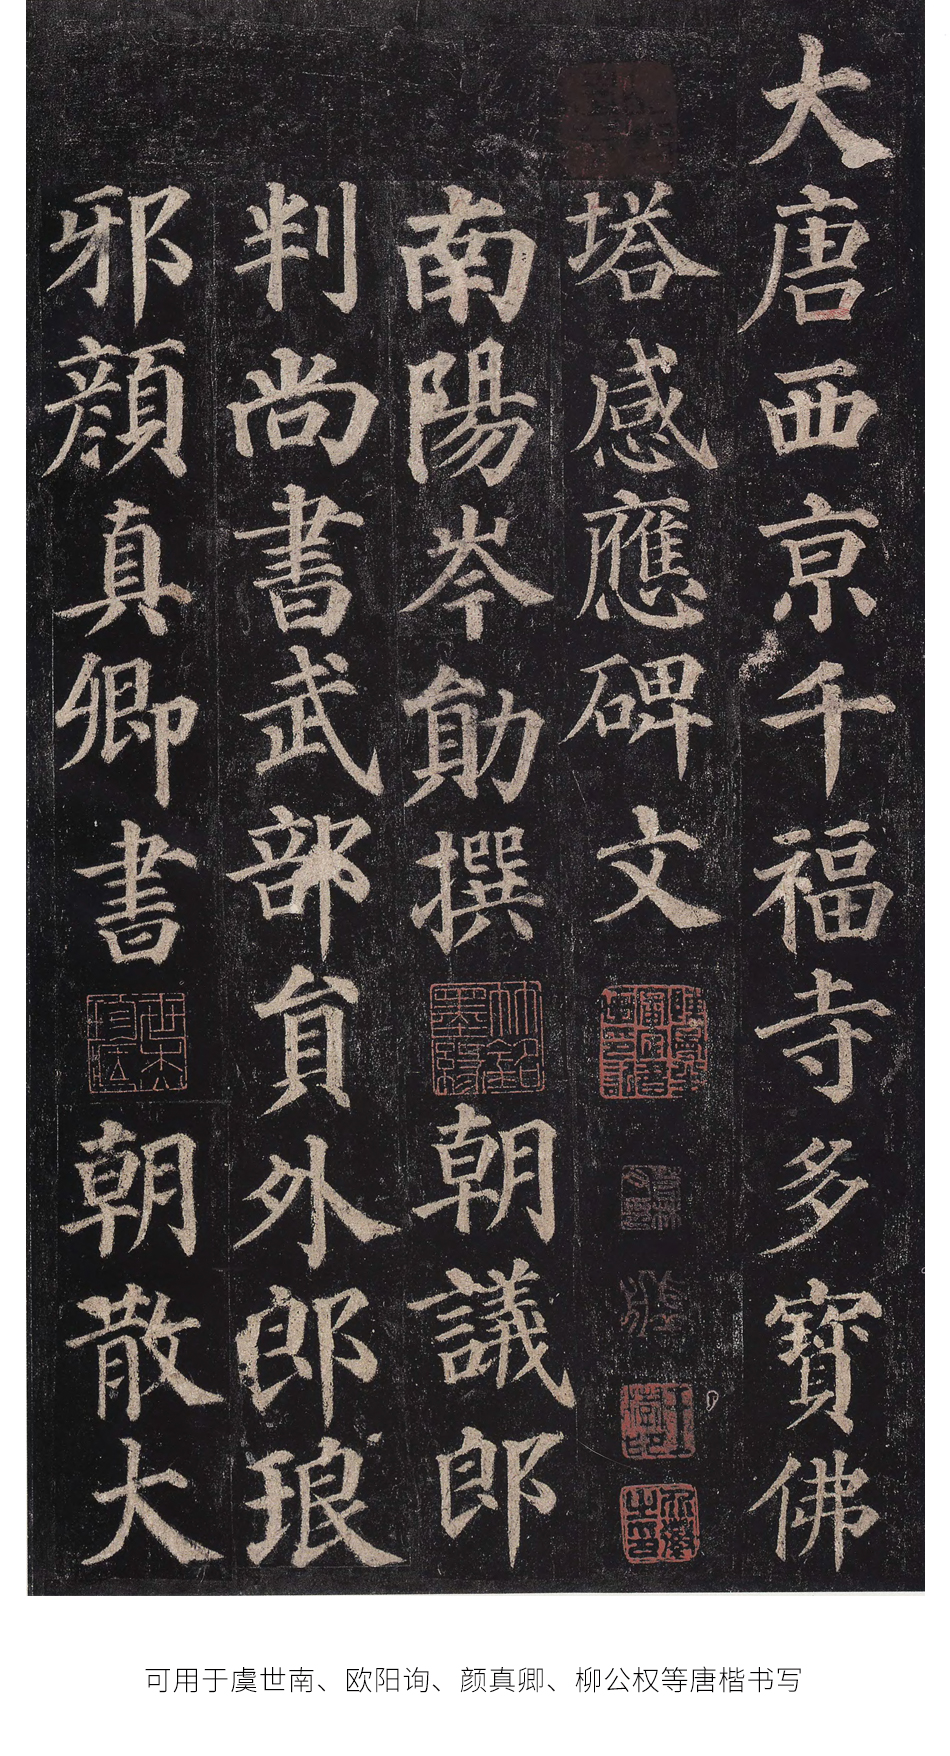 大唐西亰千福寺多寶佛
塔感應碑文
南陽岑勛撰朝議郎
判尚書武部貟外郎琅
邪顏真卿書朝散大
可用于虞世南、欧阳询、颜真卿、柳公权等唐楷书写